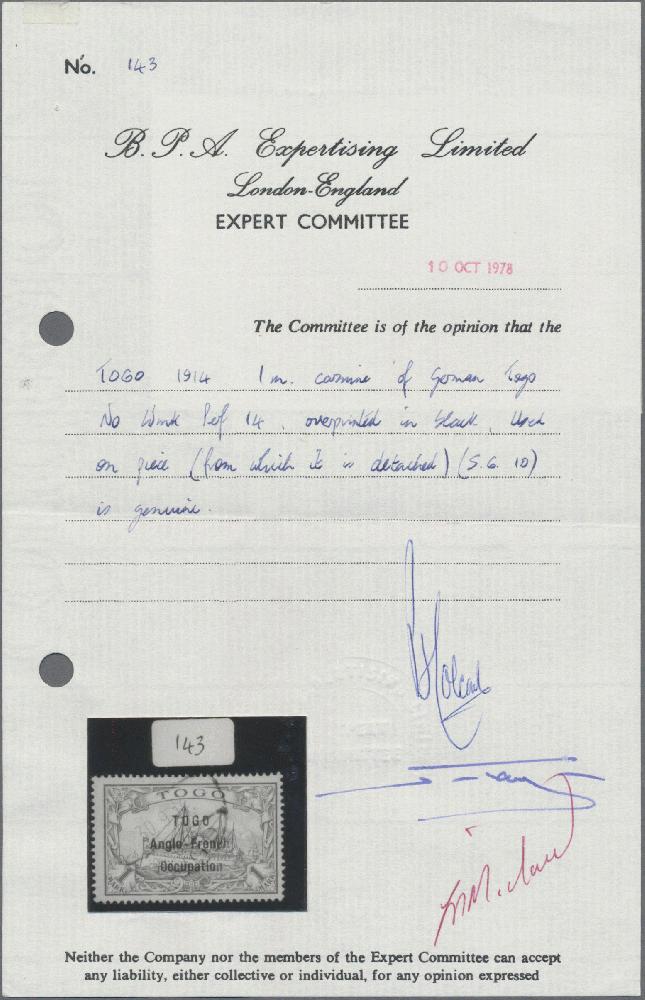 No. 143
B. P. A. Expertising Limited
London-England
EXPERT COMMITTEE
10 OCT 1978
The Committee is of the opinion that the
TOGO 1914 1 m. carmine of German Togo
No Wmk Perf 14, overprinted in black, used
on piece (from which it is detached) (S.G. 10)
is genuine.
143
TOGO
TOGO
Anglo-French
Occupation
1 1
MARK
Neither the Company nor the members of the Expert Committee can accept
any liability, either collective or individual, for any opinion expressed